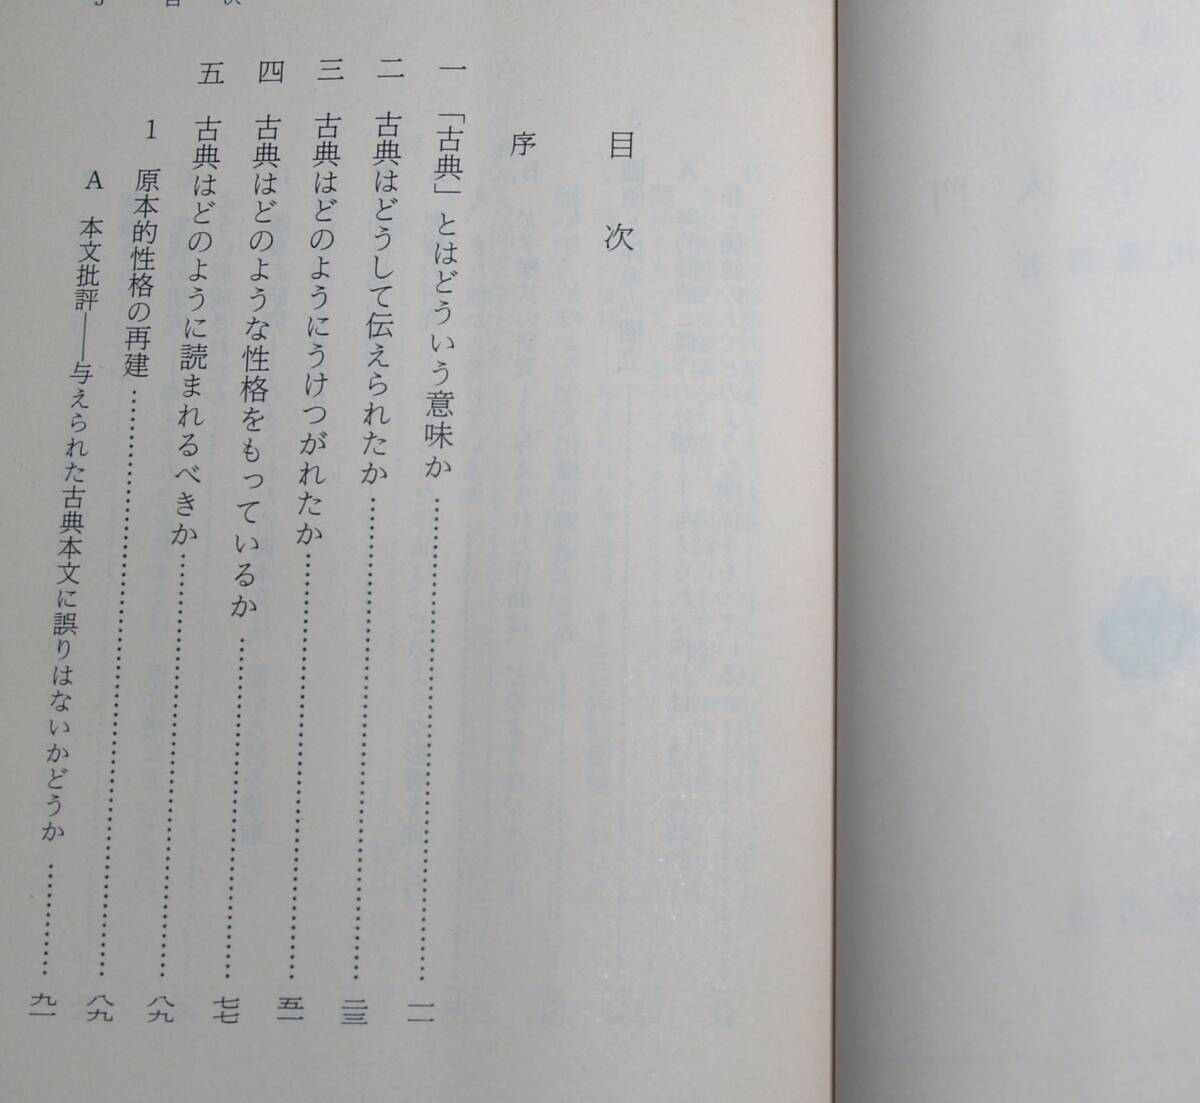 目次
序
一 「古典」とはどういう意味か……………………一一
二 古典はどうして伝えられたか……………………二三
三 古典はどのようにうけつがれたか……………………五一
四 古典はどのような性格をもっているか……………………七七
五 古典はどのように読まれるべきか……………………八九
1 原本的性格の再建……………………八九
A 本文批評――与えられた古典本文に誤りはないかどうか…………九一